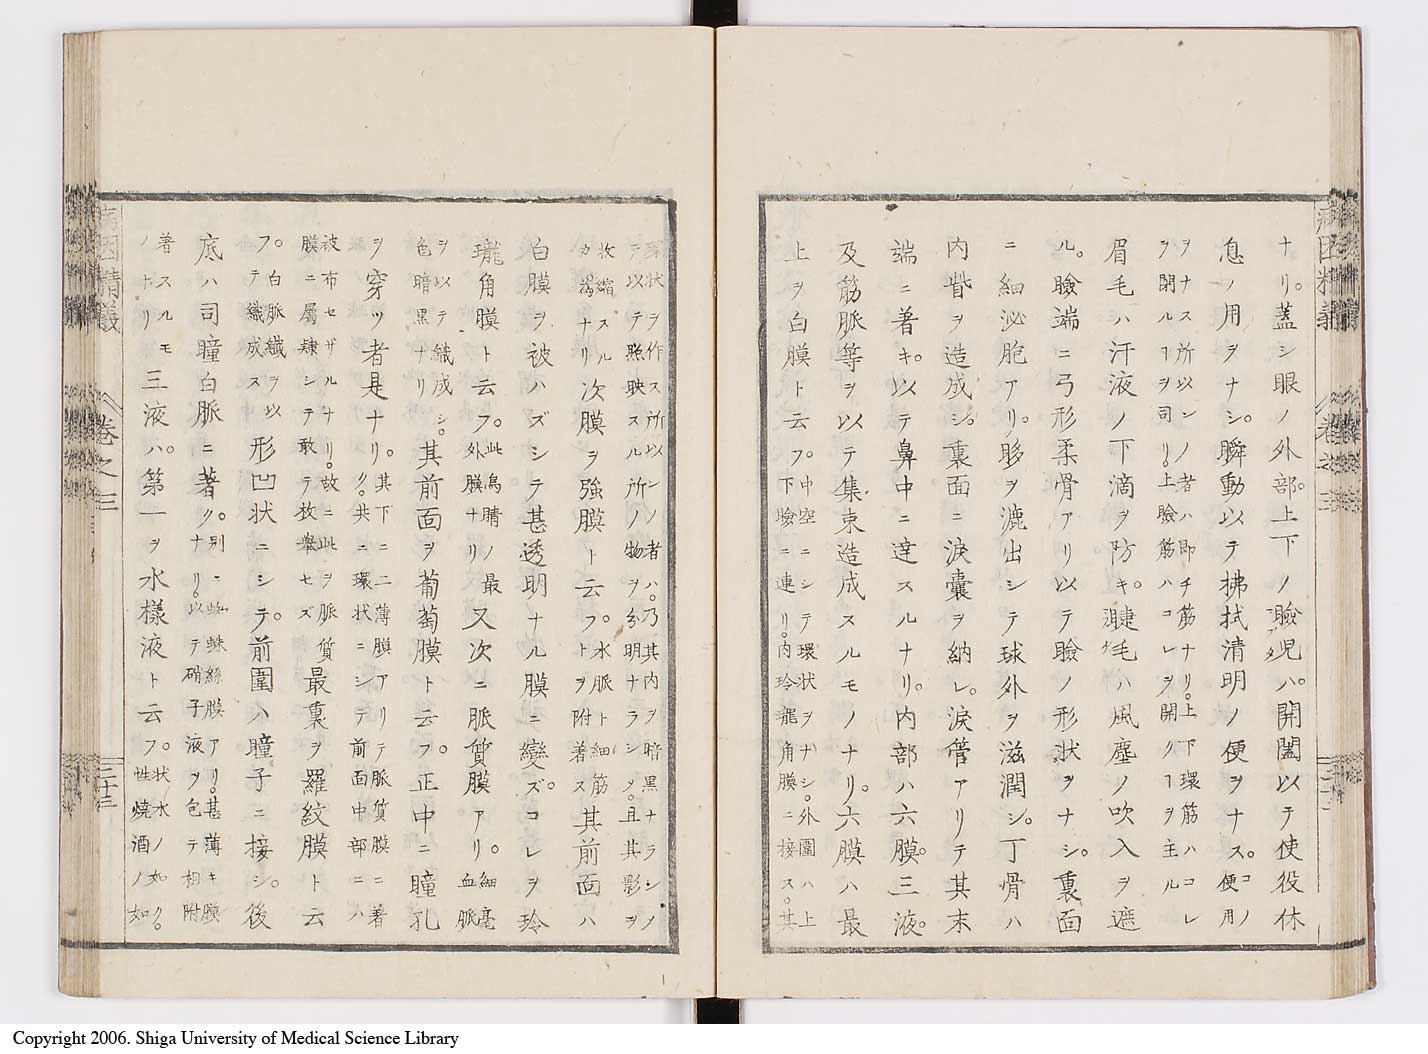 ナリ。蓋シ眼ノ外部。上下ノ瞼児ハ。開闔以テ使役休
息ノ用ヲナシ。瞬動以テ拂拭清明ノ便ヲナス。コノ便用
ヲナス所以ンノ者ハ即チ筋ナリ。上下環筋ハコレ
ヲ閉ルヿヲ司リ。上瞼筋ハコレヲ開クヿヲ主ル
眉毛ハ汗液ノ下滴ヲ防キ。睫毛ハ風塵ノ吹入ヲ遮
ル。瞼端ニ弓形柔骨アリ以テ瞼ノ形状ヲナシ。裏面
ニ細泌胞アリ。眵ヲ漉出シテ球外ヲ滋潤シ。丁骨ハ
内眥ヲ造成シ。裏面ニ涙嚢ヲ納レ。涙管アリテ其末
端ニ著キ。以テ鼻中ニ達スルナリ。内部ハ六膜。三液。
及筋脈等ヲ以テ集束造成スルモノナリ。六膜ハ最
上ヲ白膜ト云フ。中空ニシテ環状ヲナシ。外圍ハ上
下瞼ニ連リ。内玲瓏角膜ニ接ス。其
球状ヲ作ス所以ンノ者ハ。乃其内ヲ暗黒ナラシノ
テ以テ照映スル所ノ物ヲ分明ナラシメ。且其影ヲ
收縮スルカ為ナリ次膜ヲ強膜ト云フ。水脈ト細筋トヲ附著ス其前面ハ
白膜ヲ被ハズシテ甚透明ナル膜ニ變ズ。コレヲ玲
瓏角膜ト云フ。此烏睛ノ最外膜ナリ又次ニ脈質膜アリ。細毫血脈
ヲ以テ織成シ。色暗黒ナリ其前面ヲ葡萄膜ト云フ。正中ニ瞳孔
ヲ穿ツ者是ナリ。其下ニ二薄膜アリテ脈質膜ニ著
ク。共ニ環状ニシテ前面中部ニハ
被布セザルナリ。故ニ此ヲ脈質
膜ニ屬隷シテ敢テ枚擧セズ最裏ヲ羅紋膜ト云
フ。白脈織ヲ以テ織成ス形凹状ニシテ。前圍ハ瞳子ニ接シ。後
底ハ司瞳白脈ニ著ク。別ニ蜘蛛絲膜アリ。甚薄キ膜
ナリ。以テ硝子液ヲ包テ相附
著スルモノナリ三液ハ。第一ヲ水樣液ト云フ。状水ノ如ク。性燒酒ノ如
病因精義
卷之三
二十三
Copyright 2006. Shiga University of Medical Science Library